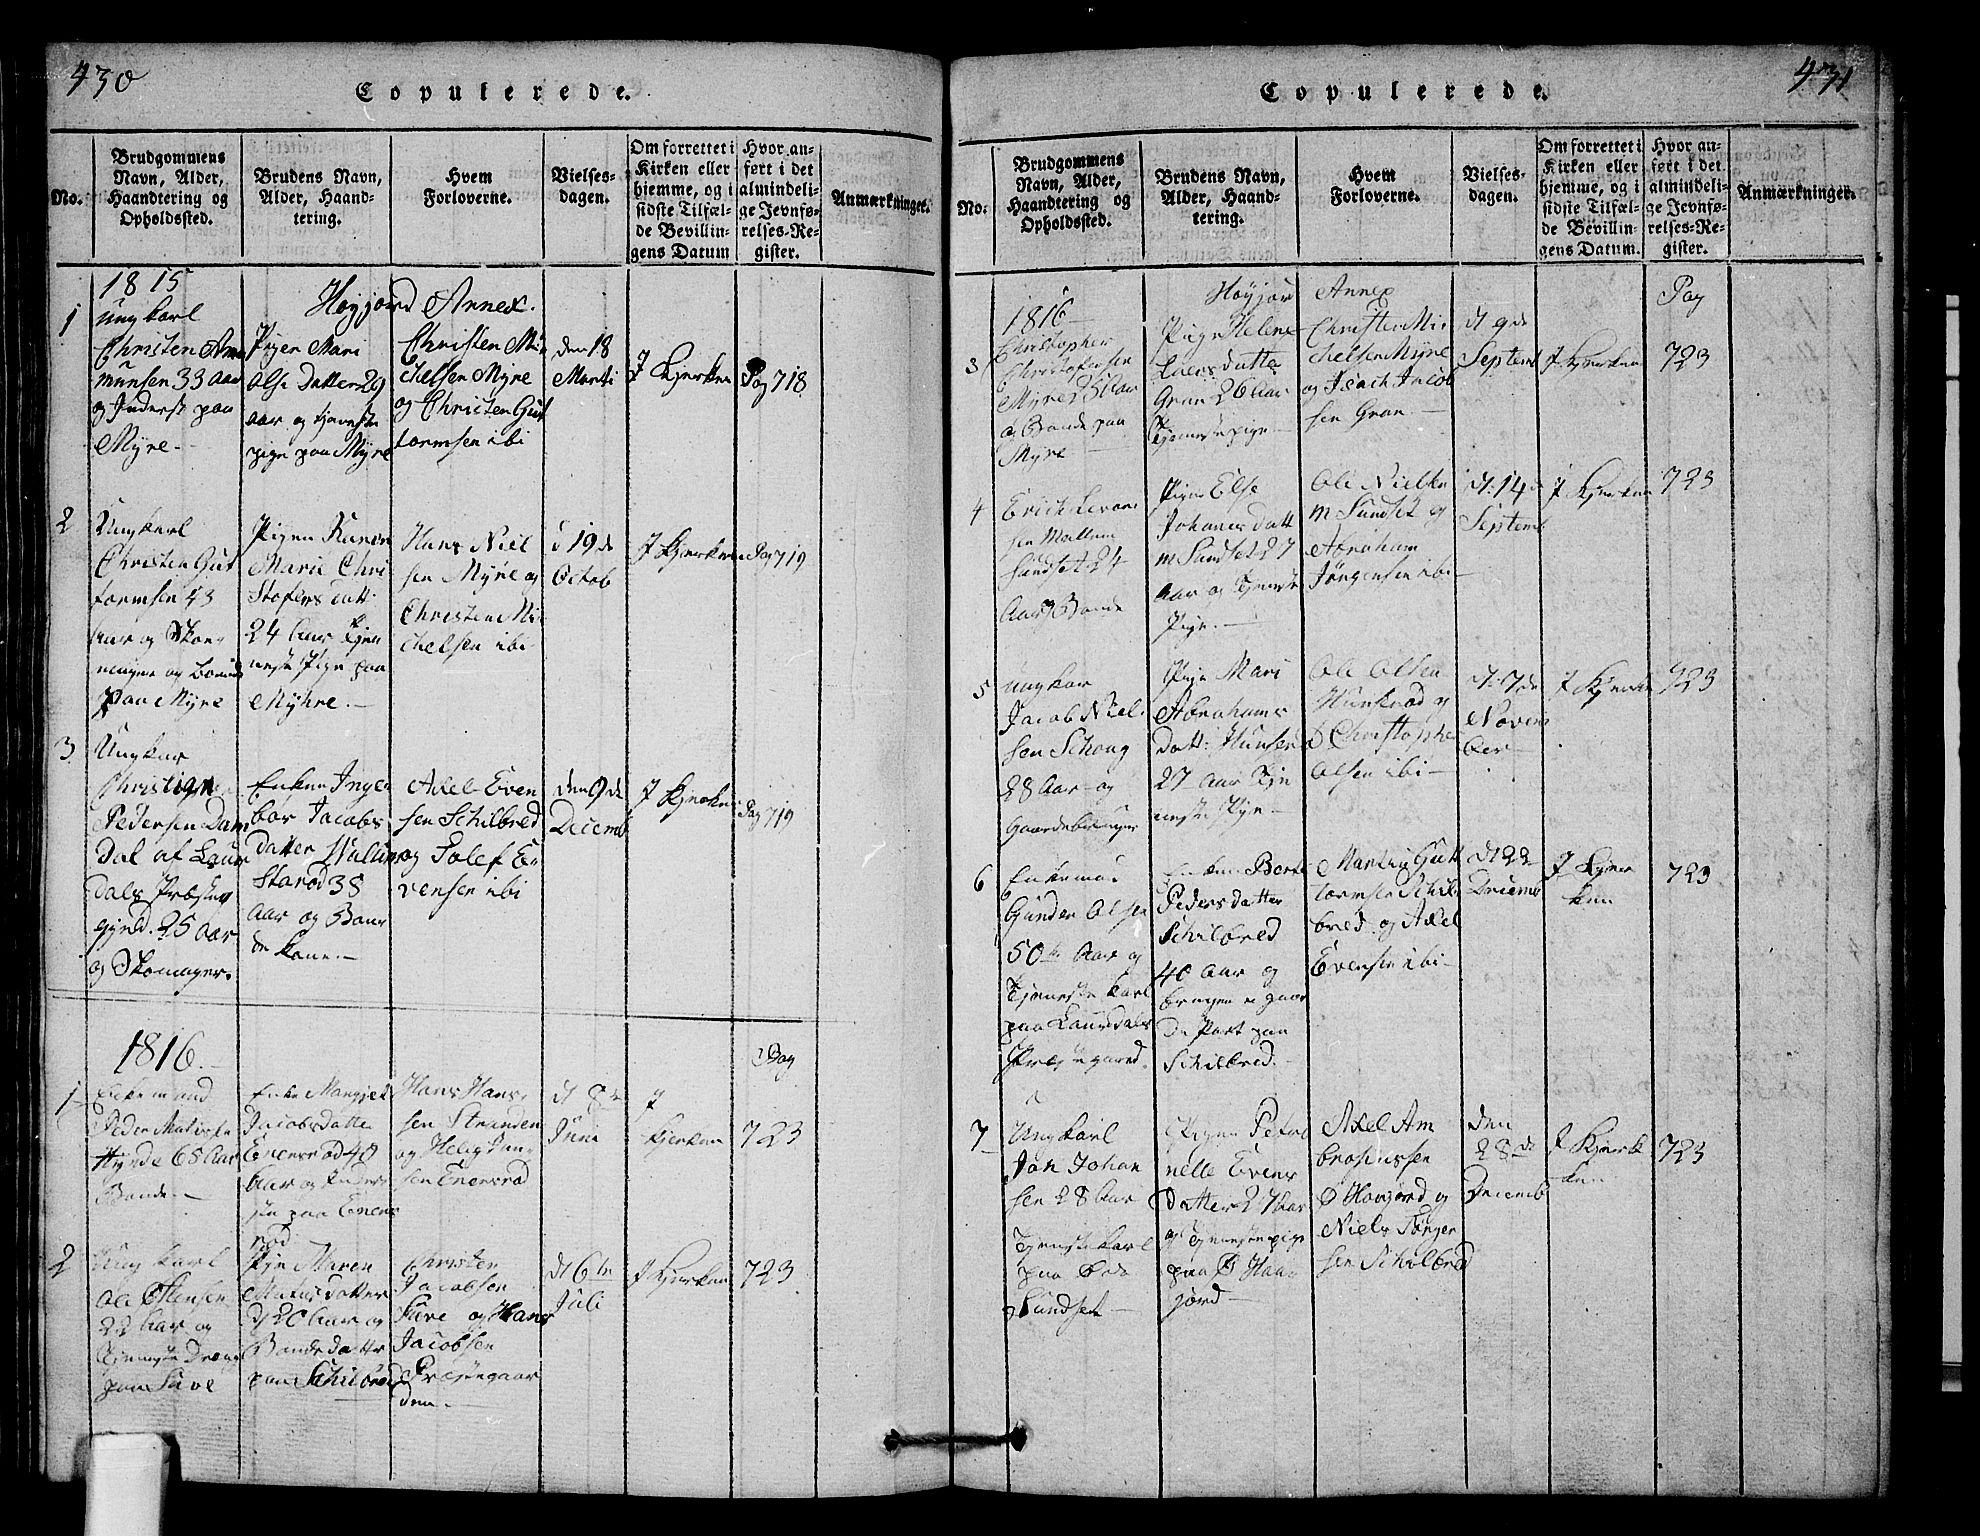 430
Copulerede.
No.
Brudgommens
Navn, Alder,
Haandtering og
Opholdssted.
Brudens Navn,
Alder, Haand-
tering.
Hvem
Forloverne.
Vielses-
dagen.
Om forrettet i
Kirken eller
hjemme, og i
sidste Tilfæl-
de Bevillin-
gens Datum
Hvor an-
ført i det
almindeli-
ge Jevnfø-
relses-Re-
gister.
Anmærkninger.
1815
Høyjord Annex.
1
Ungkarl
Christen Am
munsen 33 Aar
og Inderst paa
Myre
Pigen Mari
Olse Datter 29
aar og tjeneste
pige paa Myre
Christen Mi
chelsen Myre
og Christen Gut
tormsen ibi
den 18
Marti
J Kjerken
Pag 718
2
Ungkarl
Christen Gut
tormsen 43
Aar og Skoe
mager og
paa Myre
Pigen Karen
Marie Chri
stofers datt
24 Aar Tjen
neste Pige paa
Myhre.
Hans Niel
sen Myre og
Christen Mi
chelsen ibi
d 19de
Octob
J Kjerken
Pag 719
3
Ungkar
Christian
Pedersen Dam
Dal af Laur
dals Præste
gjeld. 25 aar
og Skomager.
Enken Inge
bor Jacobs
datter
Starød 38
Aar og Bon
de kone.
Axel Even
sen Schilbred
og Tolef E
vensen ibi
den 9de
Decemb
J Kjerken
Pag 719
1816.
Pag
1
Enkemand
Peder
Hynde 68 Aar
Bonde.
Enke Mangjel
Jacobsdatter
Enersrød 40
Aar og Inder
ste paa Eners
rød
Hans Hans
sen Stranden
og Helig Jen
sen Enersrød
d 8de
Juni
J
Kjerken
723
2
Ungkarl
Ole Hensen
22 Aar og
Tjeneste Dreng
paa Süve
Pige Maren
Matisdatter
20 Aar og
Bondedatter
paa Schilbred
Christen
Jacobsen
Süve og Hans
Jacobsen
Præstegaar
den.
d 6te
Juli
J Kjerken
723
431
Copulerede.
No.
Brudgommens
Navn, Alder,
Haandtering og
Opholdssted.
Brudens Navn,
Alder, Haand-
tering.
Hvem
Forloverne.
Vielses-
dagen.
Om forrettet i
Kirken eller
hjemme, og i
sidste Tilfæl-
de Bevillin-
gens Datum.
Hvor an-
ført i det
almindeli-
ge Jevnfø-
relses-Re-
gister.
Anmærkninger.
1816
Høyjor Annex
Pag
3
Christopher
Christofersen
Myre 25 Aar
og Bonde paa
Myre
Pige Helene
Larsdatter
Gran 26 Aar
Tjenestepige
Christen Mi
chelsen Myre
og Isach Jacob
sen Gran
d 9de
Septemb
J Kjerken
723
4
Erich
sen
Sundset 24
Aar Bonde
Pigen Else
Johanes datt
m Sundset 27
Aar og Tjeneste
Pige.
Ole Nielsen
m Sundset og
Abraham
Jörgensen ibi
d. 14de
Septemb
J Kjerken
723
5
Ungkar
Jacob Niel
sen Schoug
28 Aar og
Gaardebruger
Pige Mari
Abrahams
datt:
27 Aar Tje
neste Pige
Ole Olsen
og
Christopher
Olsen ibi
d. 7de
Novem
ber
J Kjerken
723
6
Enkemand
Gunder Olsen
50 Aar og
Tjeneste karl
paa Laurdals
Præstegaard.
Enken Berte
Pedersdatter
Schilbred
40 Aar og
bruger en gaar
de Part paa
Schilbred.
Martin Gutt
tormsen Schil
bred og Axel
Evensen ibi
d 22
Decemb
J Kjer
ken
723
7
Ungkarl
Jan Johan
sen 28 Aar
Tjenestekarl
paa
Sundset
Pigen Petro
nelle Evens
datter 27 Aar
og Tjenestepige
paa Ø Høy
jord
Axel Am
brosiussen
Ø Høyjord og
Niels Jörgen
sen Schilbred
den
28de
Decemb
J Kjerk
ken
723